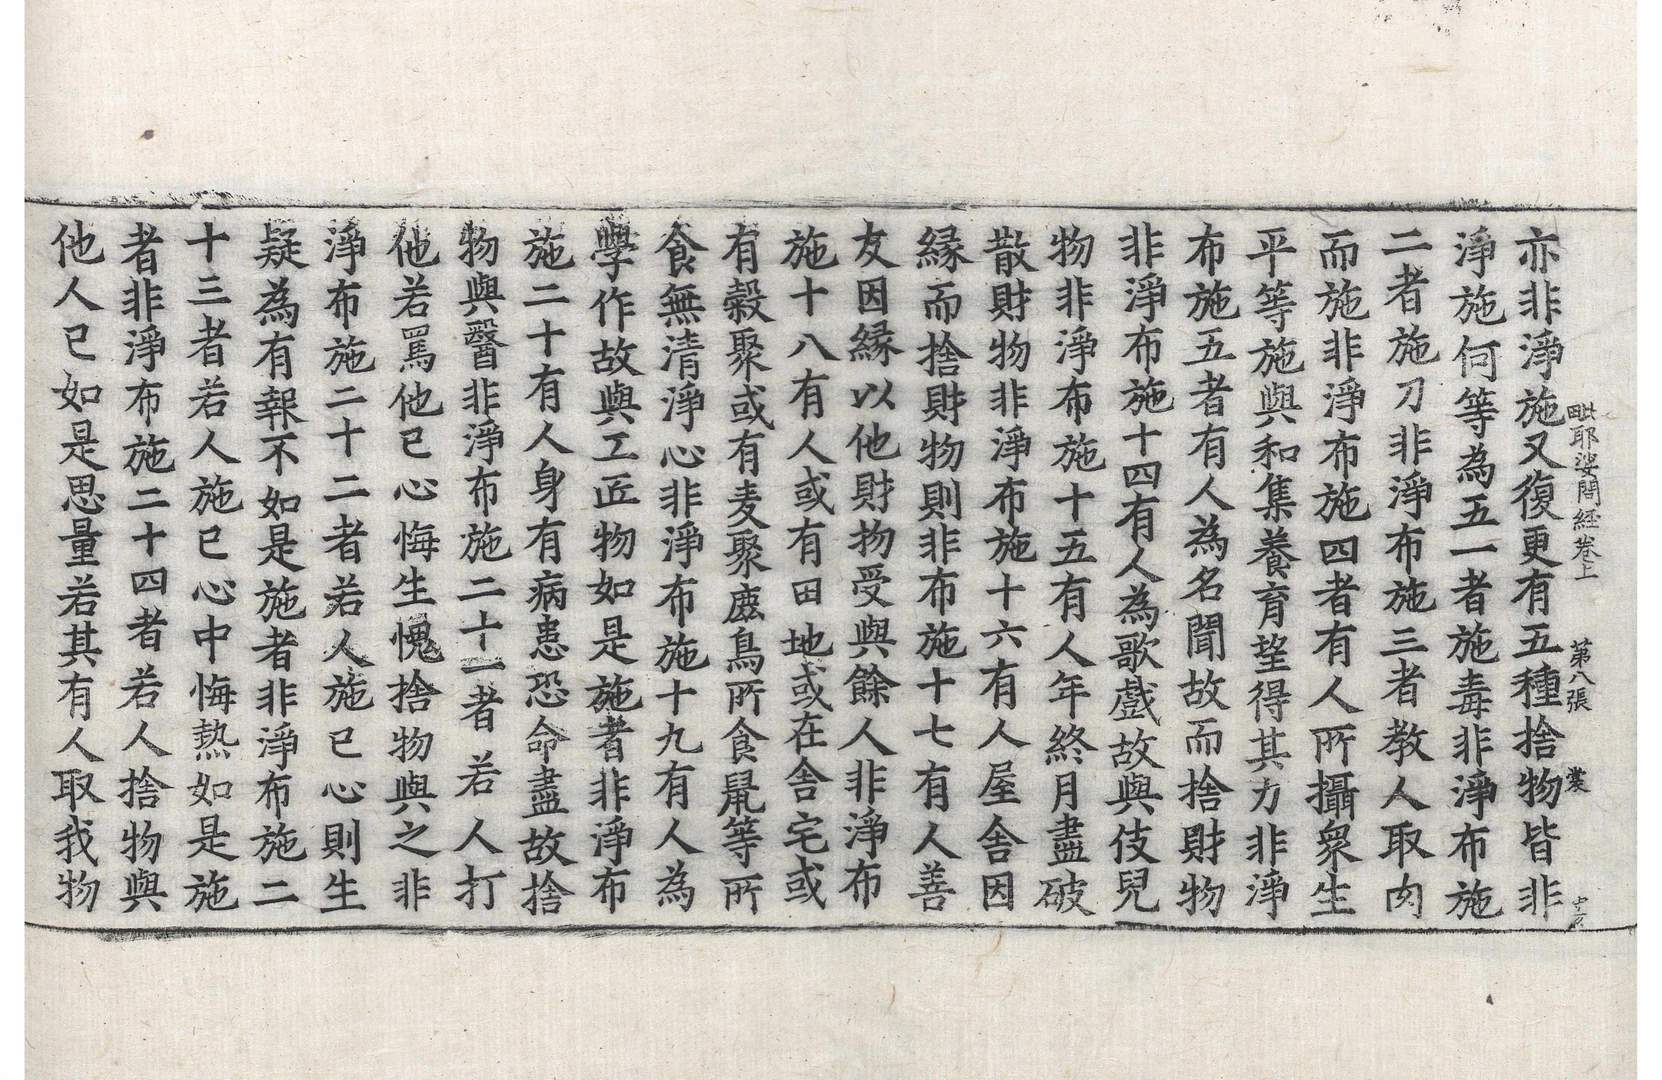 毗耶娑問経卷上 第八張 裳
亦非淨施又復更有五種捨物皆非
淨施何等為五一者施毒非淨布施
二者施刀非淨布施三者教人取肉
而施非淨布施四者有人所攝衆生
平等施與和集養育望得其力非淨
布施五者有人為名聞故而捨財物
非淨布施十四有人為歌戲故與伎兒
物非淨布施十五有人年終月盡破
散財物非淨布施十六有人屋舍因
縁而捨財物則非布施十七有人善
友因縁以他財物受與餘人非淨布
施十八有人或有田地或在舍宅或
有穀聚或有麦聚䴢鳥所食鼠等所
食無清淨心非淨布施十九有人為
學作故與工匠物如是施者非淨布
施二十有人身有病患恐命盡故捨
物與醫非淨布施二十一者若人打
他若罵他已心悔生愧捨物與之非
淨布施二十二者若人施已心則生
疑為有報不如是施者非淨布施二
十三者若人施已心中悔熱如是施
者非淨布施二十四者若人捨物與
他人已如是思量若其有人取我物